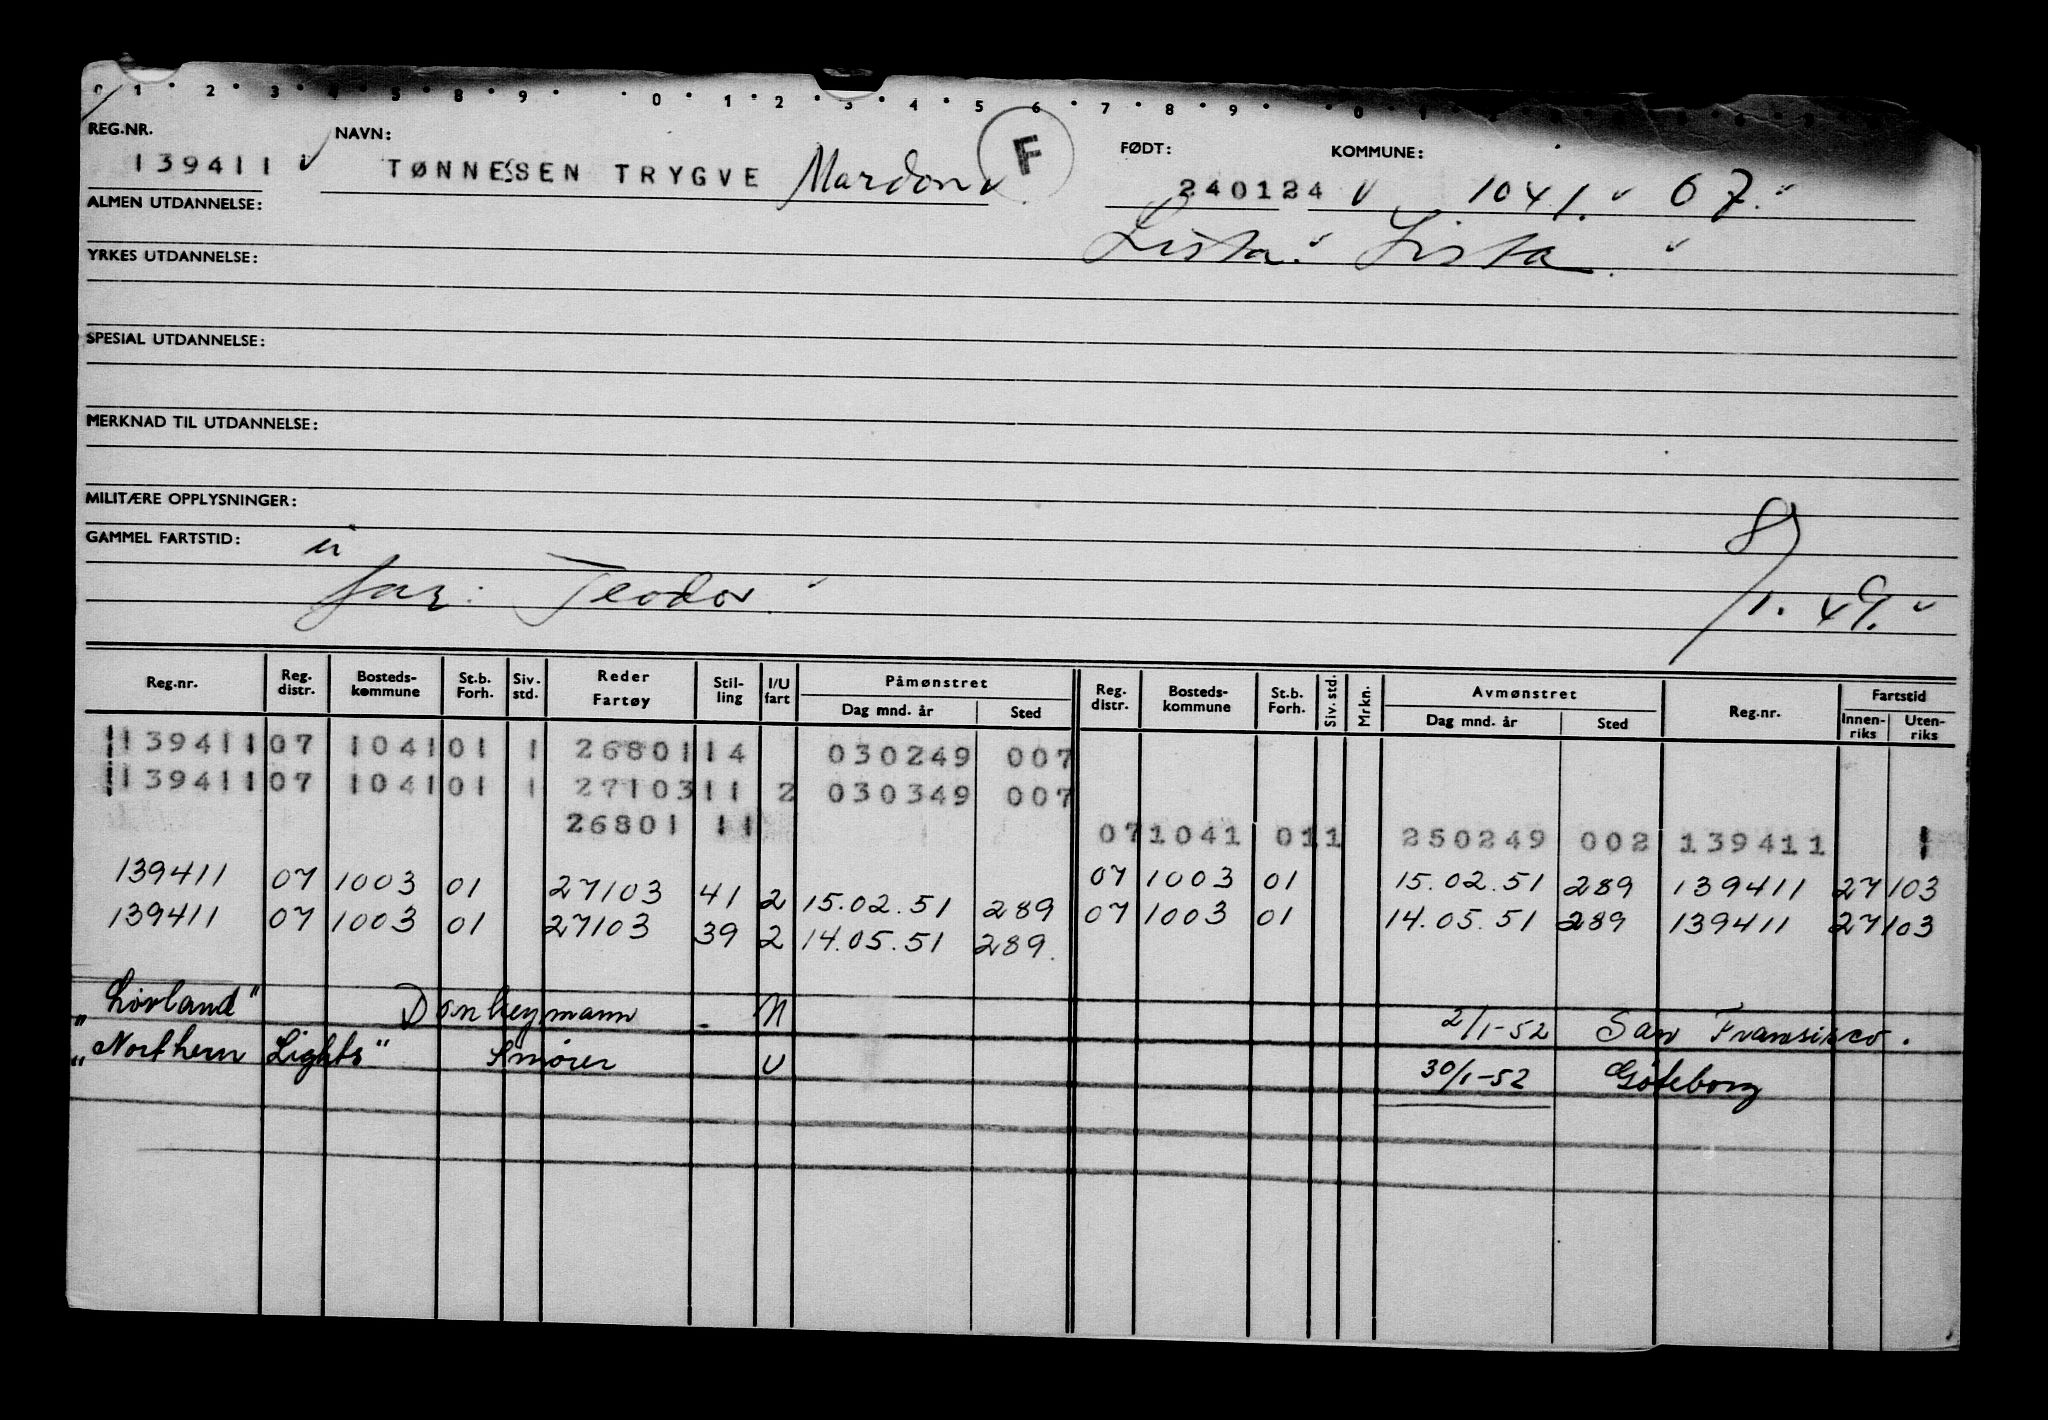 0 1 2 3 4 5 8 9 0 1 2 3 4 5 6 7 8 9 0 1
REG.NR. NAVN: FØDT: KOMMUNE:
139411 v TØNNESSEN TRYGVE Mardon v F 240124 v 1041. v 07. v
ALMEN UTDANNELSE: Lista. v Lista. v
YRKES UTDANNELSE:
SPESIAL UTDANNELSE:
MERKNAD TIL UTDANNELSE:
MILITÆRE OPPLYSNINGER:
GAMMEL FARTSTID:
far: Teodor. v 8/1. 49. v
Reg.nr. Reg. distr. Bosteds-kommune St.b. Forh. Siv. std. Reder Fartøy Stil-ling I/U fart Påmønstret Dag mnd. år Sted Reg. distr. Bosteds-kommune St.b. Forh. Siv. std. Mrkn. Avmønstret Dag mnd. år Sted Reg.nr. Fartstid Innen-riks Uten-riks
139411 07 1041 01 1 26801 14 030249 007
139411 07 1041 01 1 27103 11 2 030349 007
26801 11 07 1041 01 1 250249 002 139411 1
139411 07 1003 01 27103 41 2 15.02.51 289 07 1003 01 15.02.51 289 139411 27103
139411 07 1003 01 27103 39 2 14.05.51 289. 07 1003 01 14.05.51 289 139411 27103
"Lovland" Donkeymann - N 2/1-52 San Fransisco.
"Northern Lights" Smører U 30/1-52 Göteborg